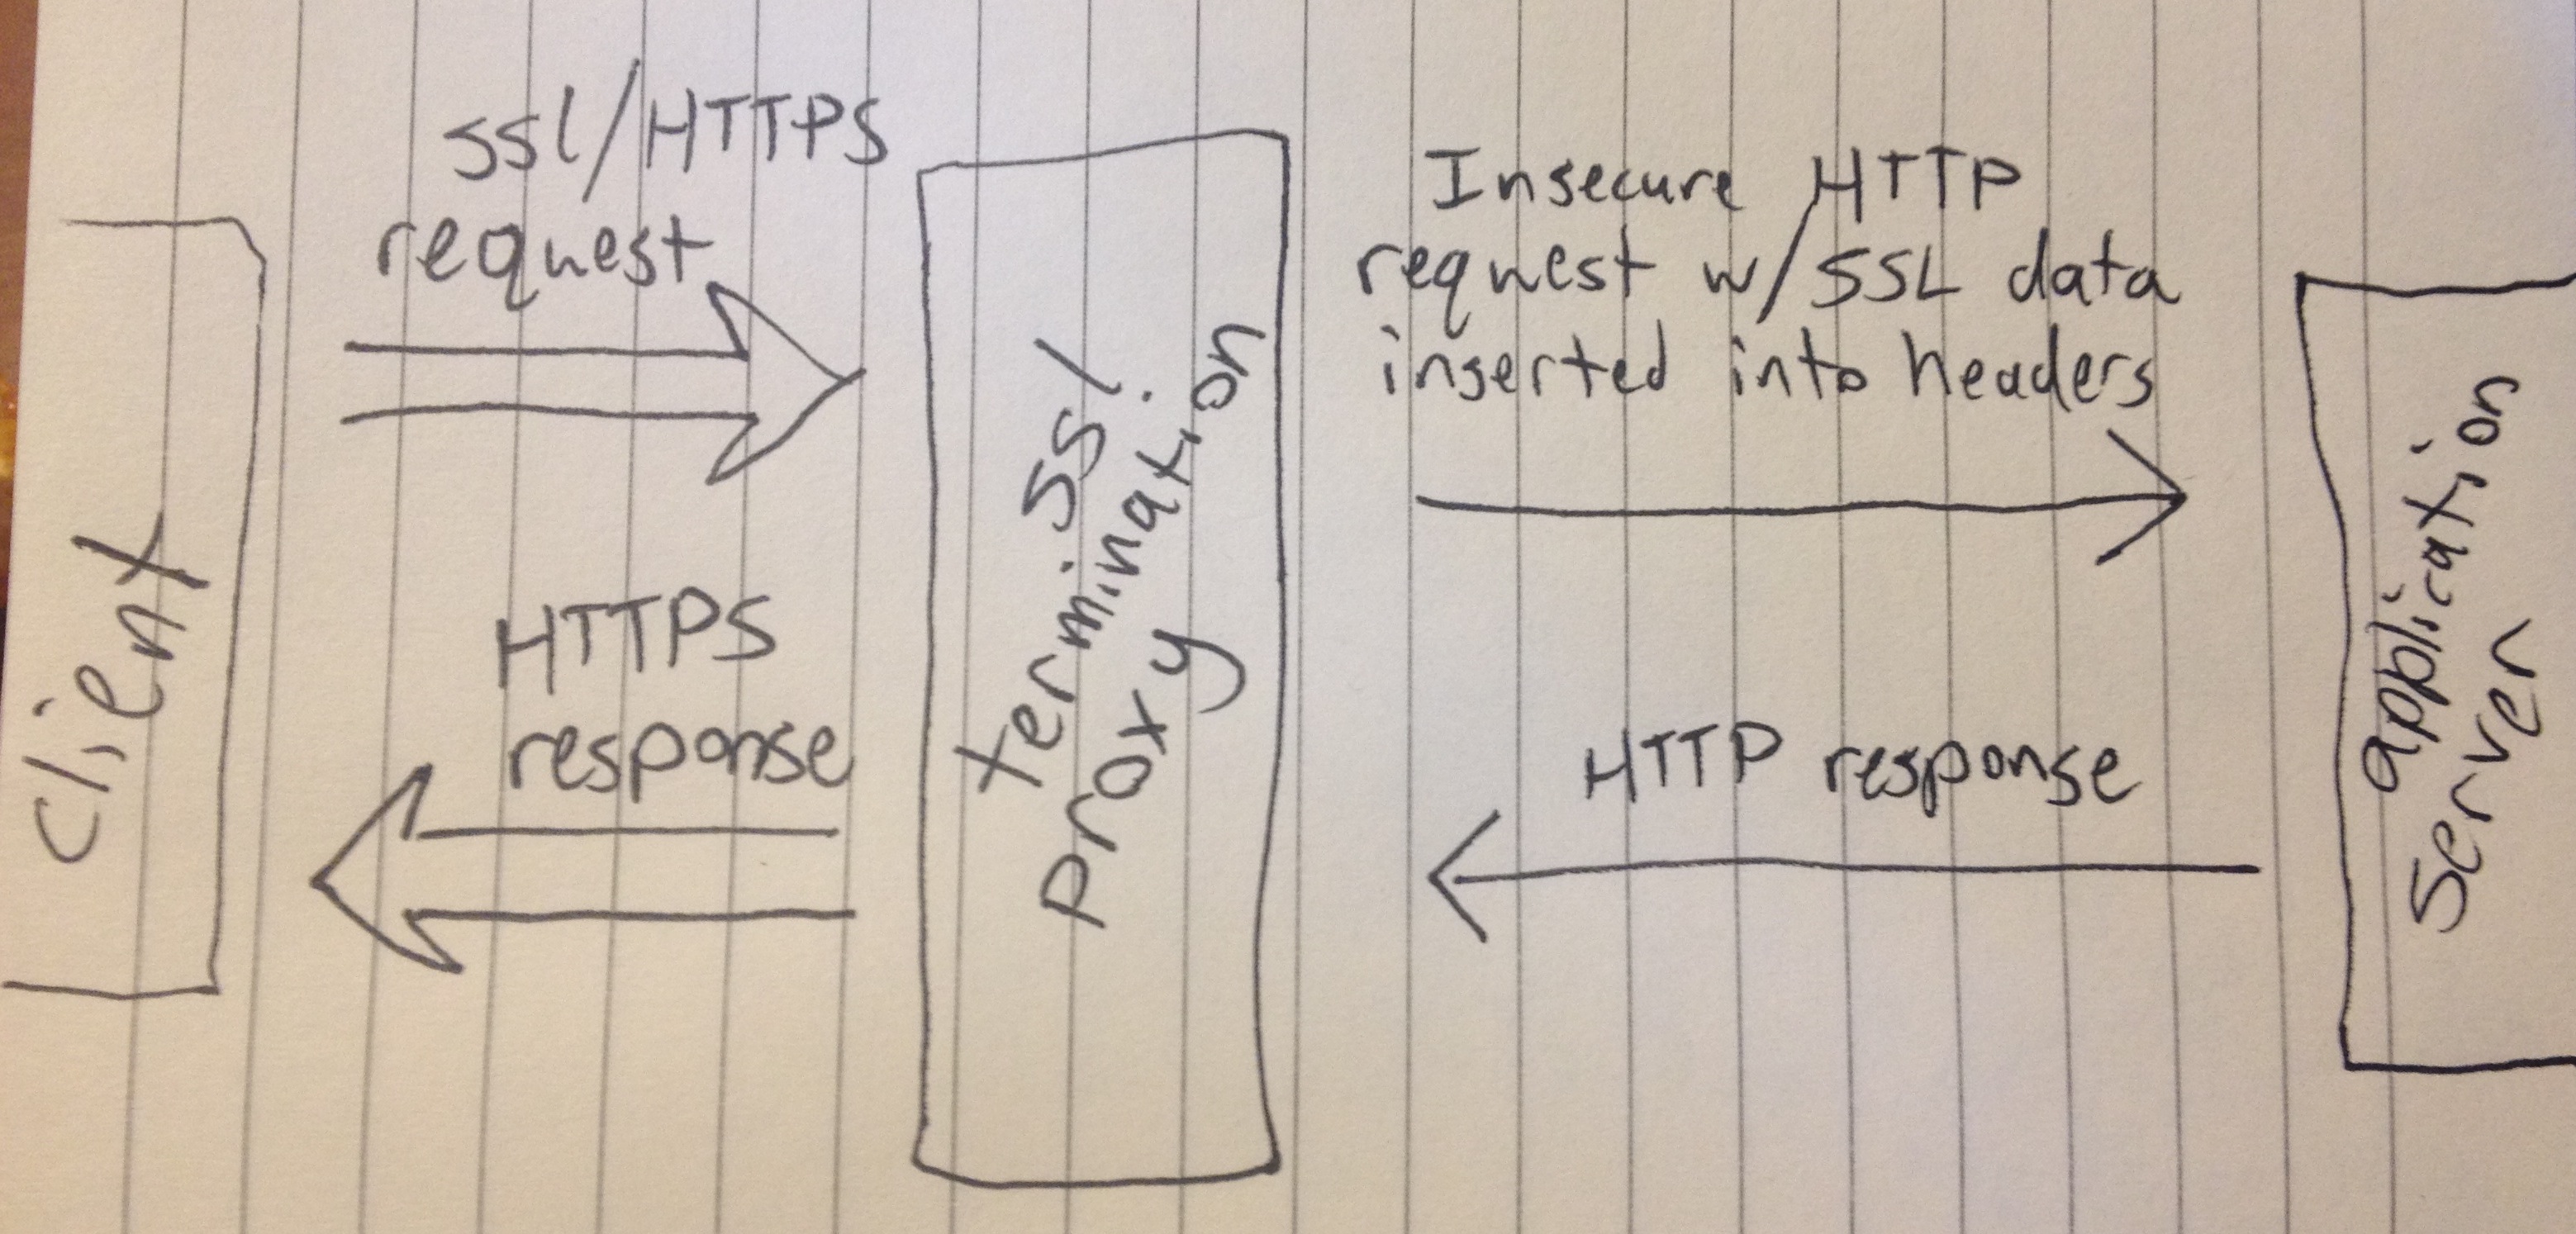 client
ssl/HTTPS
request
HTTPS
response
ssl
termination
proxy
Insecure HTTP
request w/ SSL data
inserted into headers
HTTP response
application
Server